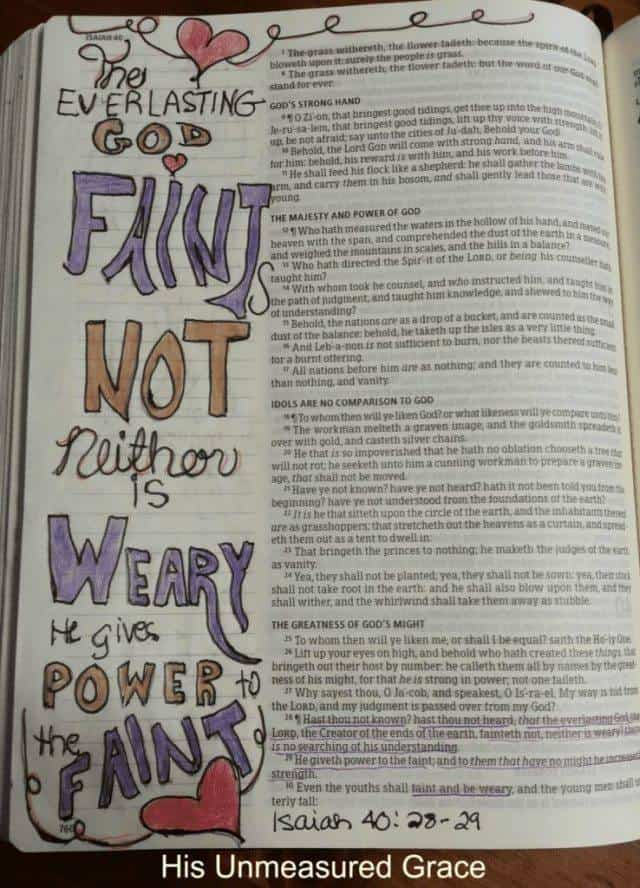 ISAIAH 40
The
EVERLASTING
GOD
FAINTs
NOT
Neither
is
WEARY
He gives
POWER to
the
FAINT
760
⁷ The grass withereth, the flower fadeth: because the spirit of the LORD
bloweth upon it: surely the people is grass.
⁸ The grass withereth, the flower fadeth: but the word of our God shall
stand for ever.
GOD'S STRONG HAND
⁹ ¶ O Zi'-on, that bringest good tidings, get thee up into the high mountain; O
Je-ru-sa-lem, that bringest good tidings, lift up thy voice with strength; lift it
up, be not afraid; say unto the cities of Ju'-dah, Behold your God!
¹⁰ Behold, the Lord GOD will come with strong hand, and his arm shall rule
for him: behold, his reward is with him, and his work before him.
¹¹ He shall feed his flock like a shepherd: he shall gather the lambs with his
arm, and carry them in his bosom, and shall gently lead those that are with
young.
THE MAJESTY AND POWER OF GOD
¹² ¶ Who hath measured the waters in the hollow of his hand, and meted out
heaven with the span, and comprehended the dust of the earth in a measure,
and weighed the mountains in scales, and the hills in a balance?
¹³ Who hath directed the Spir'-it of the LORD, or being his counseller hath
taught him?
¹⁴ With whom took he counsel, and who instructed him, and taught him in
the path of judgment, and taught him knowledge, and shewed to him the way
of understanding?
¹⁵ Behold, the nations are as a drop of a bucket, and are counted as the small
dust of the balance: behold, he taketh up the isles as a very little thing.
¹⁶ And Leb-a-non is not sufficient to burn, nor the beasts thereof sufficient
for a burnt offering.
¹⁷ All nations before him are as nothing; and they are counted to him less
than nothing, and vanity.
IDOLS ARE NO COMPARISON TO GOD
¹⁸ ¶ To whom then will ye liken God? or what likeness will ye compare unto him?
¹⁹ The workman melteth a graven image, and the goldsmith spreadeth it
over with gold, and casteth silver chains.
²⁰ He that is so impoverished that he hath no oblation chooseth a tree that
will not rot; he seeketh unto him a cunning workman to prepare a graven im-
age, that shall not be moved.
²¹ Have ye not known? have ye not heard? hath it not been told you from the
beginning? have ye not understood from the foundations of the earth?
²² It is he that sitteth upon the circle of the earth, and the inhabitants thereof
are as grasshoppers; that stretcheth out the heavens as a curtain, and spread-
eth them out as a tent to dwell in:
²³ That bringeth the princes to nothing; he maketh the judges of the earth
as vanity.
²⁴ Yea, they shall not be planted; yea, they shall not be sown: yea, their stock
shall not take root in the earth: and he shall also blow upon them, and they
shall wither, and the whirlwind shall take them away as stubble.
THE GREATNESS OF GOD'S MIGHT
²⁵ To whom then will ye liken me, or shall I be equal? saith the Ho-ly One.
²⁶ Lift up your eyes on high, and behold who hath created these things, that
bringeth out their host by number: he calleth them all by names by the great-
ness of his might, for that he is strong in power; not one faileth.
²⁷ Why sayest thou, O Ja'-cob, and speakest, O Is'-ra-el, My way is hid from
the LORD, and my judgment is passed over from my God?
²⁸ ¶ Hast thou not known? hast thou not heard, that the everlasting God, the
LORD, the Creator of the ends of the earth, fainteth not, neither is weary? there
is no searching of his understanding.
²⁹ He giveth power to the faint; and to them that have no might he increaseth
strength.
³⁰ Even the youths shall faint and be weary, and the young men shall ut-
terly fall:
Isaiah 40:28-29
His Unmeasured Grace